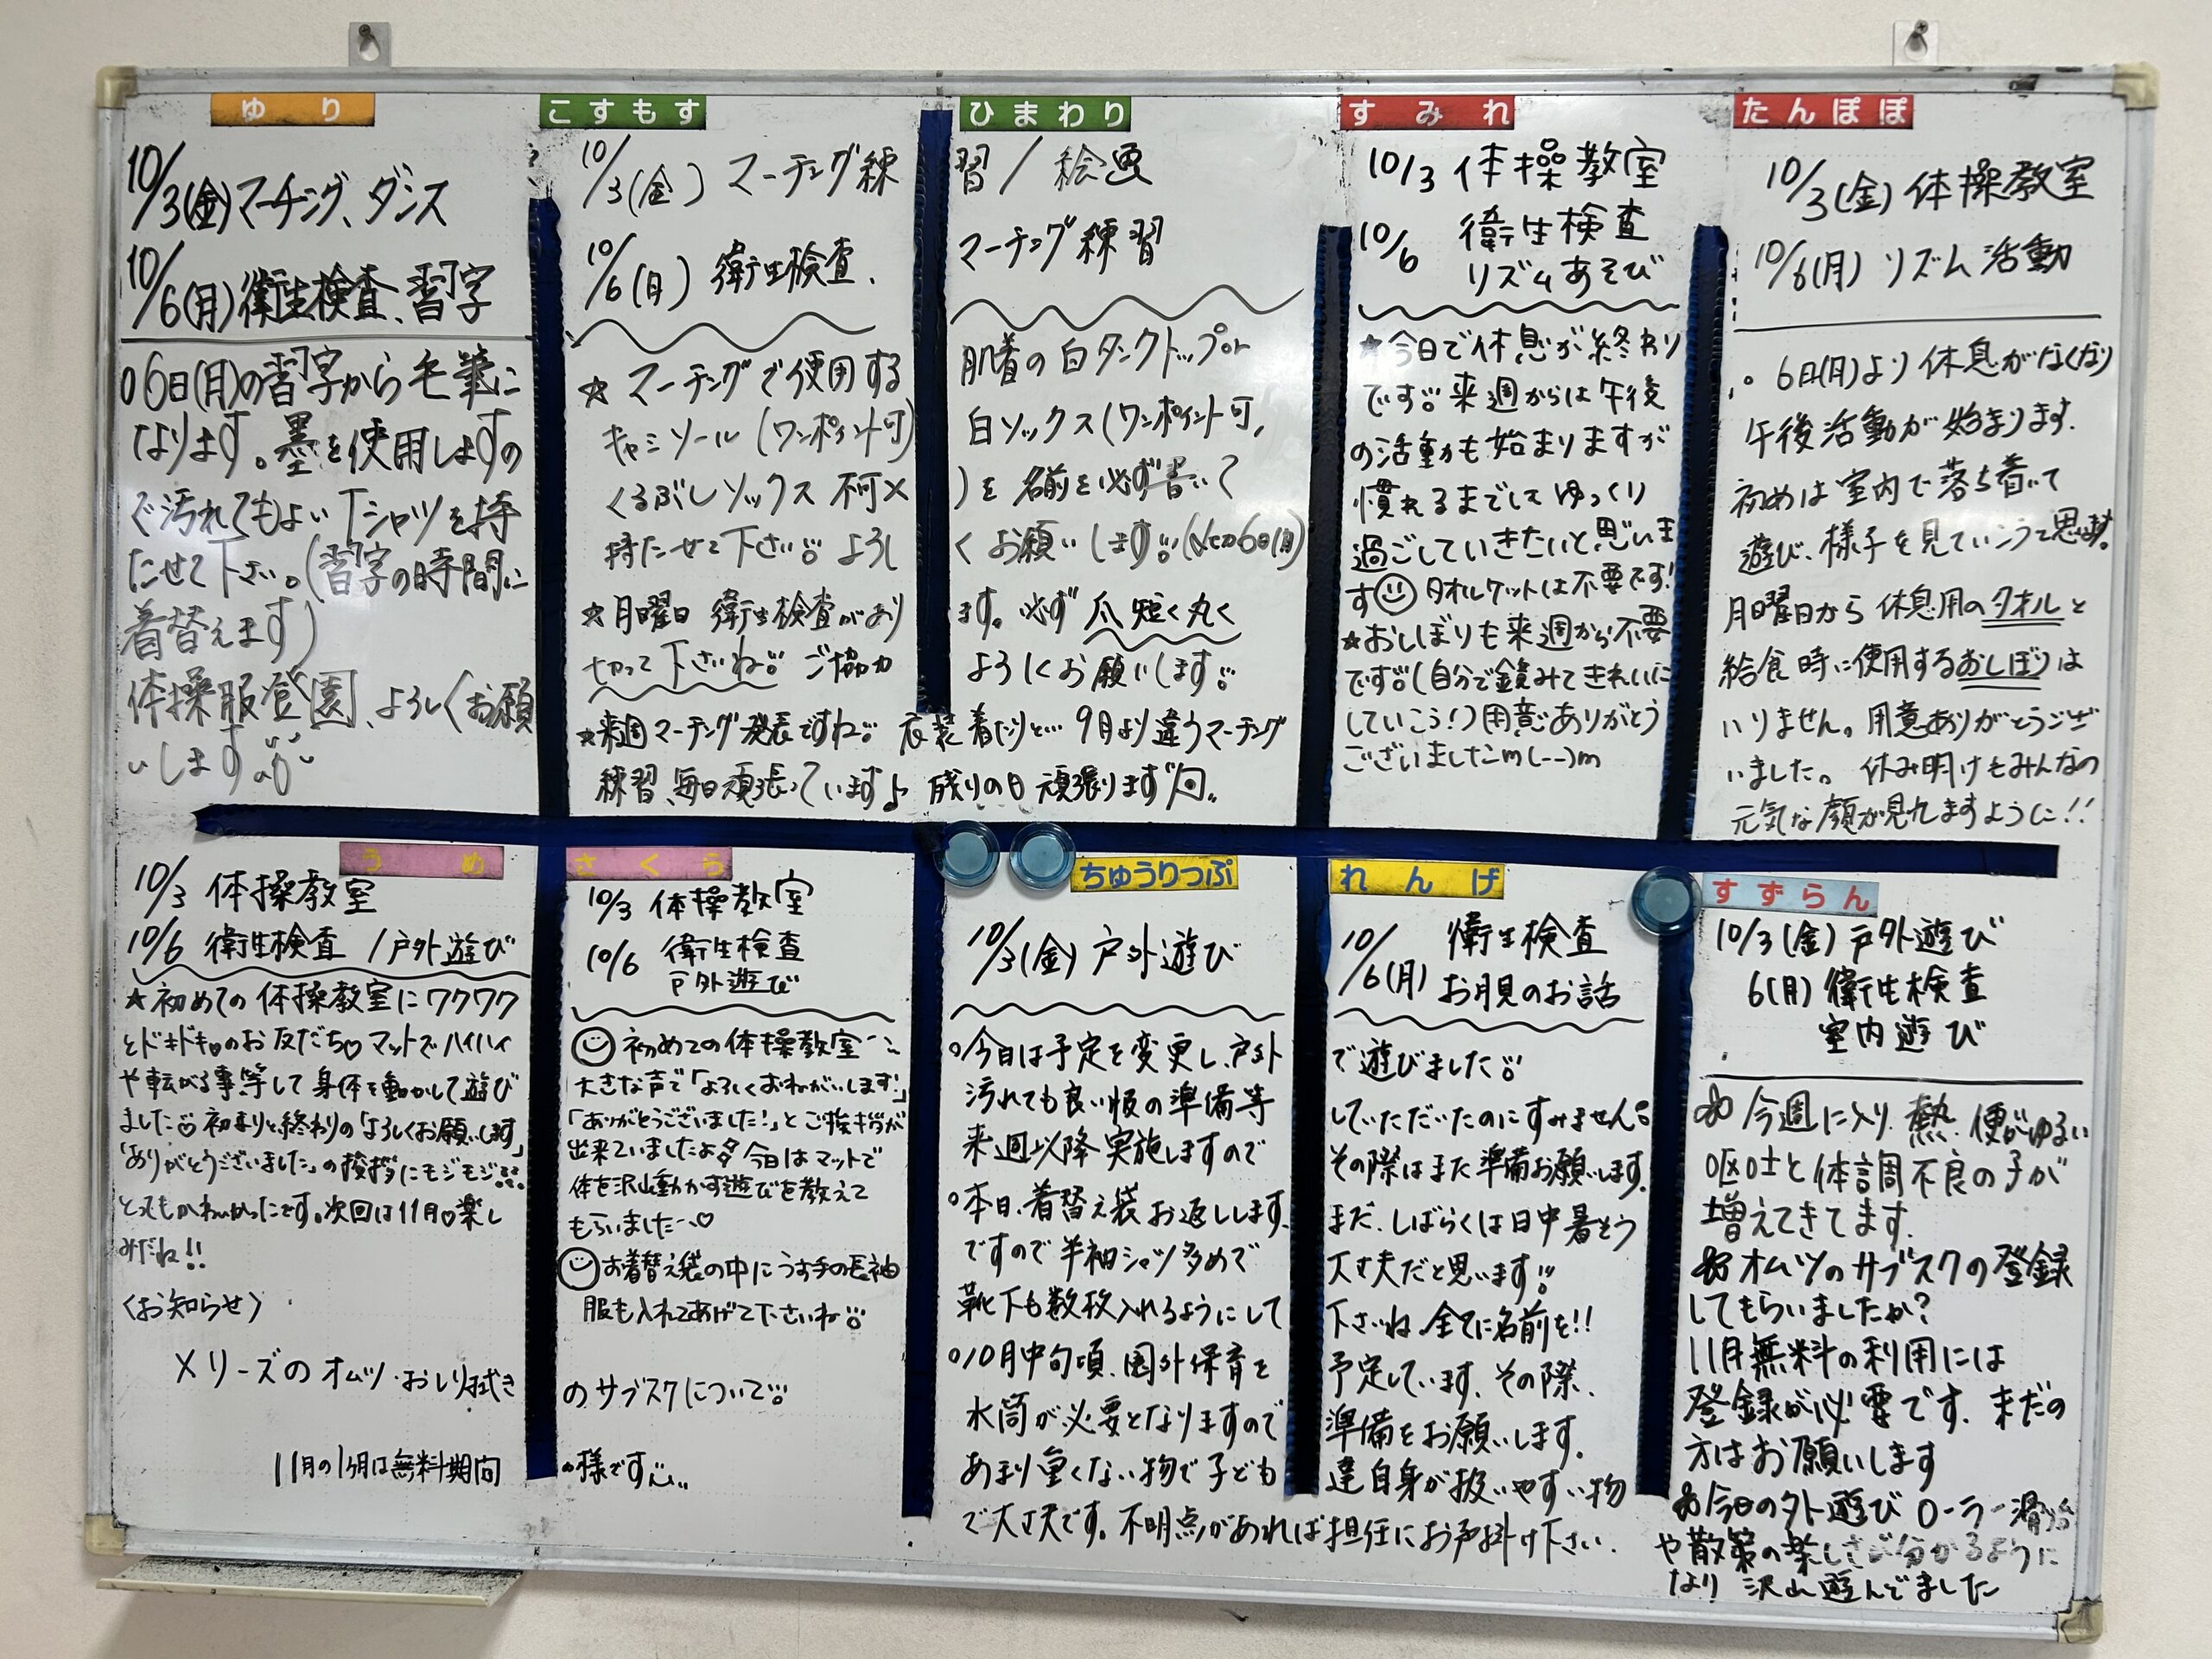 ゆり
10/3(金)マーチング、ダンス
10/6(月)衛生検査、習字
○6日(月)の習字から毛筆に
なります。墨を使用しますの
で汚れてもよいTシャツを持
たせて下さい。(習字の時間に
着替えます)
体操服登園、よろしくお願
いします。
こすもす ひまわり
10/3(金) マーチング練習/絵画
10/6(月) 衛生検査、マーチング練習
☆マーチングで使用する肌着の白タンクトップor
キャミソール(ワンポイント可)白ソックス(ワンポイント可,
くるぶしソックス不可×)を名前を必ず書いて
持たせて下さい。よろしくお願いします。(〆切6日(月))
☆月曜日 衛生検査があります。必ず爪短く丸く
切って下さいね。ご協力よろしくお願いします。
☆来週マーチング発表ですね。衣装着たりと…9月より違うマーチング
練習、毎日頑張っています♪ 残りの日頑張ります
すみれ
10/3 体操教室
10/6 衛生検査
リズムあそび
★今日で休息が終わり
です。来週からは午後
の活動も始まりますが
慣れるまでは ゆっくり
過ごしていきたいと思いま
す☺タオルケットは不要です!
★おしぼりも来週から不要
です。(自分で鏡みてきれいに
していこう!)用意ありがとう
ございましたm(--)m
たんぽぽ
10/3(金)体操教室
10/6(月)リズム活動
○6日(月)より休息がなくなり
午後活動が始まります。
初めは室内で落ち着いて
遊び、様子を見ていこうと思います。
月曜日から休息用のタオルと
給食時に使用するおしぼりは
いりません。用意ありがとうござ
いました。休み明けもみんなの
元気な顔が見れますように!!
うめ
10/3 体操教室
10/6 衛生検査 /戸外遊び
★初めての体操教室にワクワク
とドキドキ♡のお友だち♡マットでハイハイ
や転がる事等して身体を動かして遊び
ました♡初まりと終わりの「よろしくお願いします」
「ありがとうございました」の挨拶にモジモジ
とってもかわいかったです。次回は11月♡楽し
みだね!!
さくら
10/3 体操教室
10/6 衛生検査
戸外遊び
☺初めての体操教室
大きな声で「よろしくおねがいします!」
「ありがとうございました!」とご挨拶が
出来ていましたよ 今日はマットで
体を沢山動かす遊びを教えて
もらいました♡
☺お着替え袋の中にうす手の長袖
服も入れてあげて下さいね
〈お知らせ〉
メリーズのオムツ・おしり拭きのサブスクについて
11月の1ヶ月は無料期間の様です
ちゅうりっぷ れんげ
10/3(金)戸外遊び
10/6(月) 衛生検査
お月見のお話
○今日は予定を変更し、戸外で遊びました
汚れても良い服の準備等していただいたのにすみません。
来週以降実施しますのでその際はまた準備お願いします。
○本日、着替え袋お返しします。まだ、しばらくは日中暑そう
ですので半袖シャツ多めで大丈夫だと思います!!
靴下も数枚入れるようにして下さいね。全てに名前を!!
○10月中旬頃、園外保育を予定しています。その際、
水筒が必要となりますので準備をお願いします。
あまり重くない物で子ども達自身が扱いやすい物
で大丈夫です。不明点があれば担任にお声掛け下さい。
すずらん
10/3(金)戸外遊び
6(月)衛生検査
室内遊び
今週に入り、熱、便がゆるい
嘔吐と体調不良の子が
増えてきてます。
オムツのサブスクの登録
してもらいましたか?
11月無料の利用には
登録が必要です。まだの
方はお願いします
今日の外遊び ローラー滑り台
や散策の楽しさが分かるように
なり 沢山遊んでました